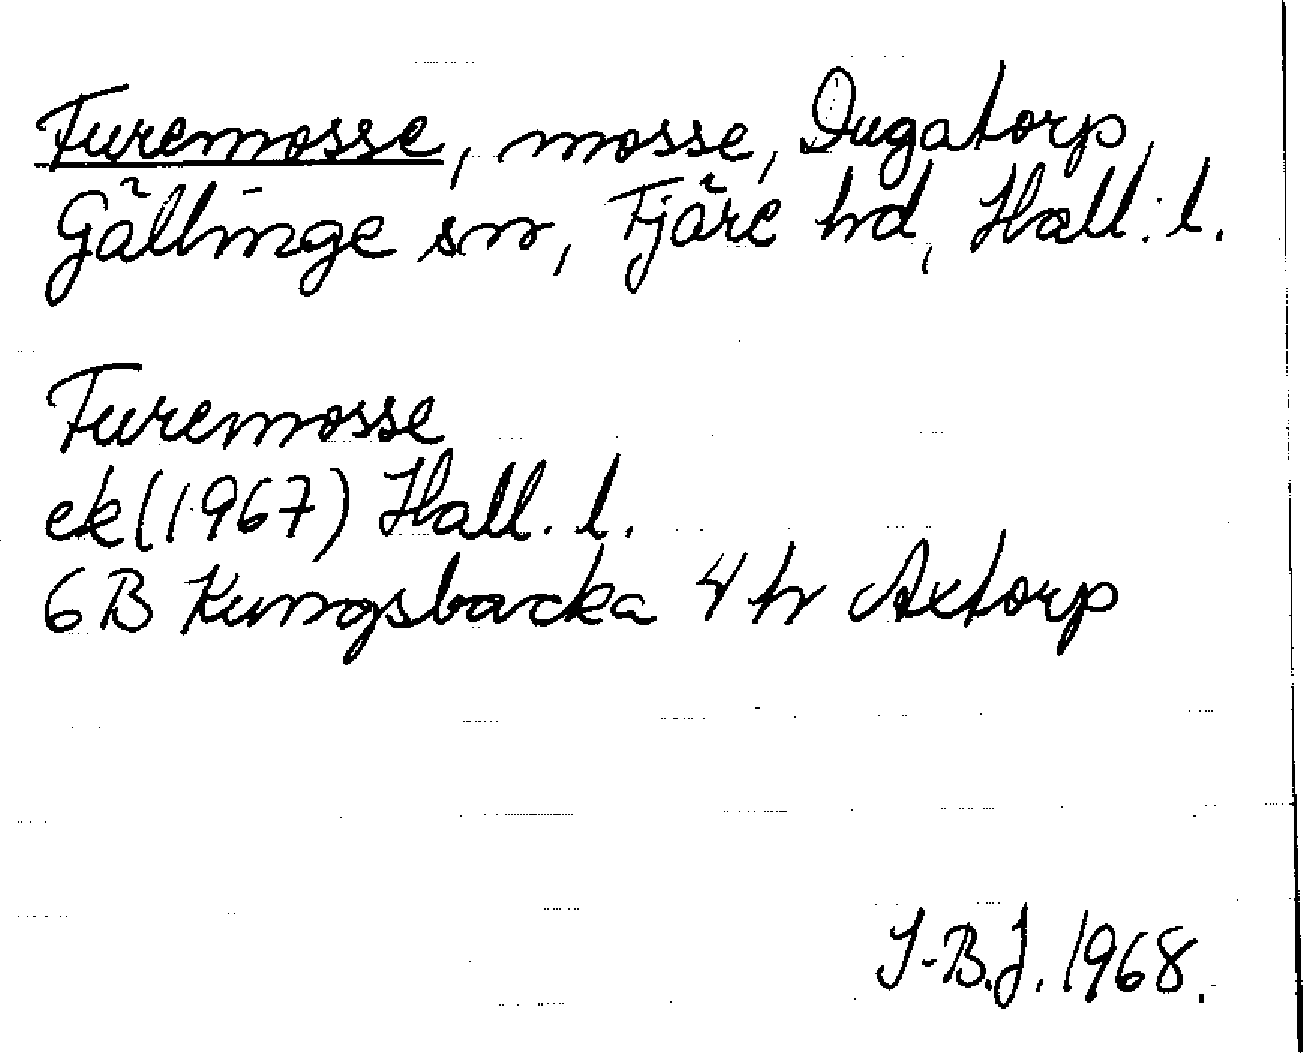 Furemosse, mosse, Dugatorp,
Gällinge sn, Fjäre hd, Hall. l.
Furemosse
ek (1967) Hall. l.
6B Kungsbacka 4 h Axtorp
I-B.J. 1968.